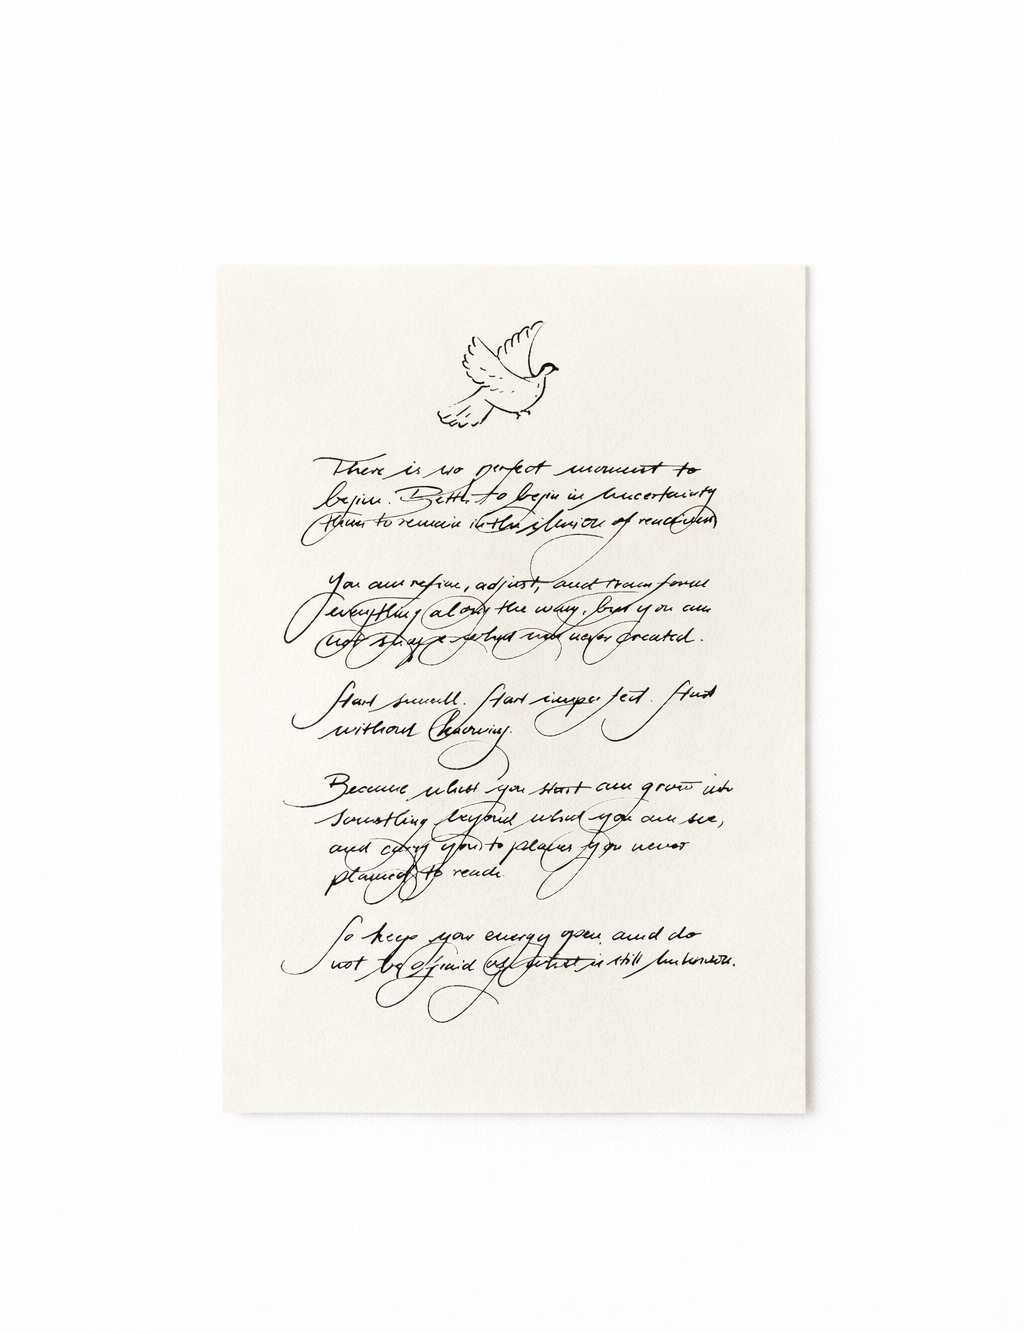 There is no perfect moment to
begin. Better to begin in uncertainty
than to remain in the illusion of readiness
You can refine, adjust, and transform
everything along the way, but you can
not shape what was never created.
Start small. Start imperfect. Start
without knowing.
Because what you start can grow into
something beyond what you can see,
and carry you to places you never
planned to reach.
So keep your energy open and do
not be afraid of what is still unknown.